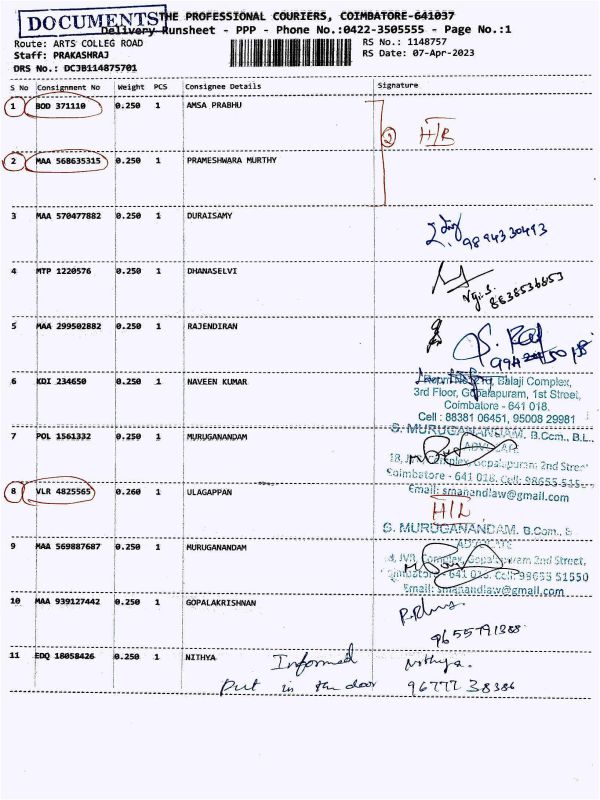 DOCUMENTS
THE PROFESSIONAL COURIERS, COIMBATORE-641037
Delivery Runsheet - PPP - Phone No.:0422-3505555 - Page No.:1
Route: ARTS COLLEG ROAD
RS No.: 1148757
Staff: PRAKASHRAJ
RS Date: 07-Apr-2023
DRS No.: DCJB114875701
S No Consignment No Weight PCS Consignee Details Signature
1 BOD 371110 0.250 1 AMSA PRABHU
2 H/B
2 MAA 568635315 0.250 1 PRAMESHWARA MURTHY
3 MAA 570477882 0.250 1 DURAISAMY
9894330493
4 MTP 1220576 0.250 1 DHANASELVI
8838536853
5 MAA 299502882 0.250 1 RAJENDIRAN
6 KDI 234650 0.250 1 NAVEEN KUMAR
Balaji Complex,
3rd Floor, Gopalapuram, 1st Street,
Coimbatore - 641 018.
Cell : 88381 06451, 95008 29981
7 POL 1561332 0.250 1 MURUGANANDAM
S. MURUGANANDAM. B.Com., B.L.,
ADVOCATE
Complex, Gopalapuram 2nd Street
Coimbatore - 641 018. Cell: 98655
Email: smanandlaw@gmail.com
8 VLR 4825565 0.260 1 ULAGAPPAN
H/L
S. MURUGANANDAM. B.Com., B
ADVOCATE
9 MAA 569887687 0.250 1 MURUGANANDAM
JVR Complex, Gopalapuram 2nd Street,
Coimbatore - 641 018. Cell: 98655 51550
Email: smanandlaw@gmail.com
10 MAA 939127442 0.250 1 GOPALAKRISHNAN
9655791388
11 EDQ 18058426 0.250 1 NITHYA
Informed Nithya.
Put in the door 96777 38386